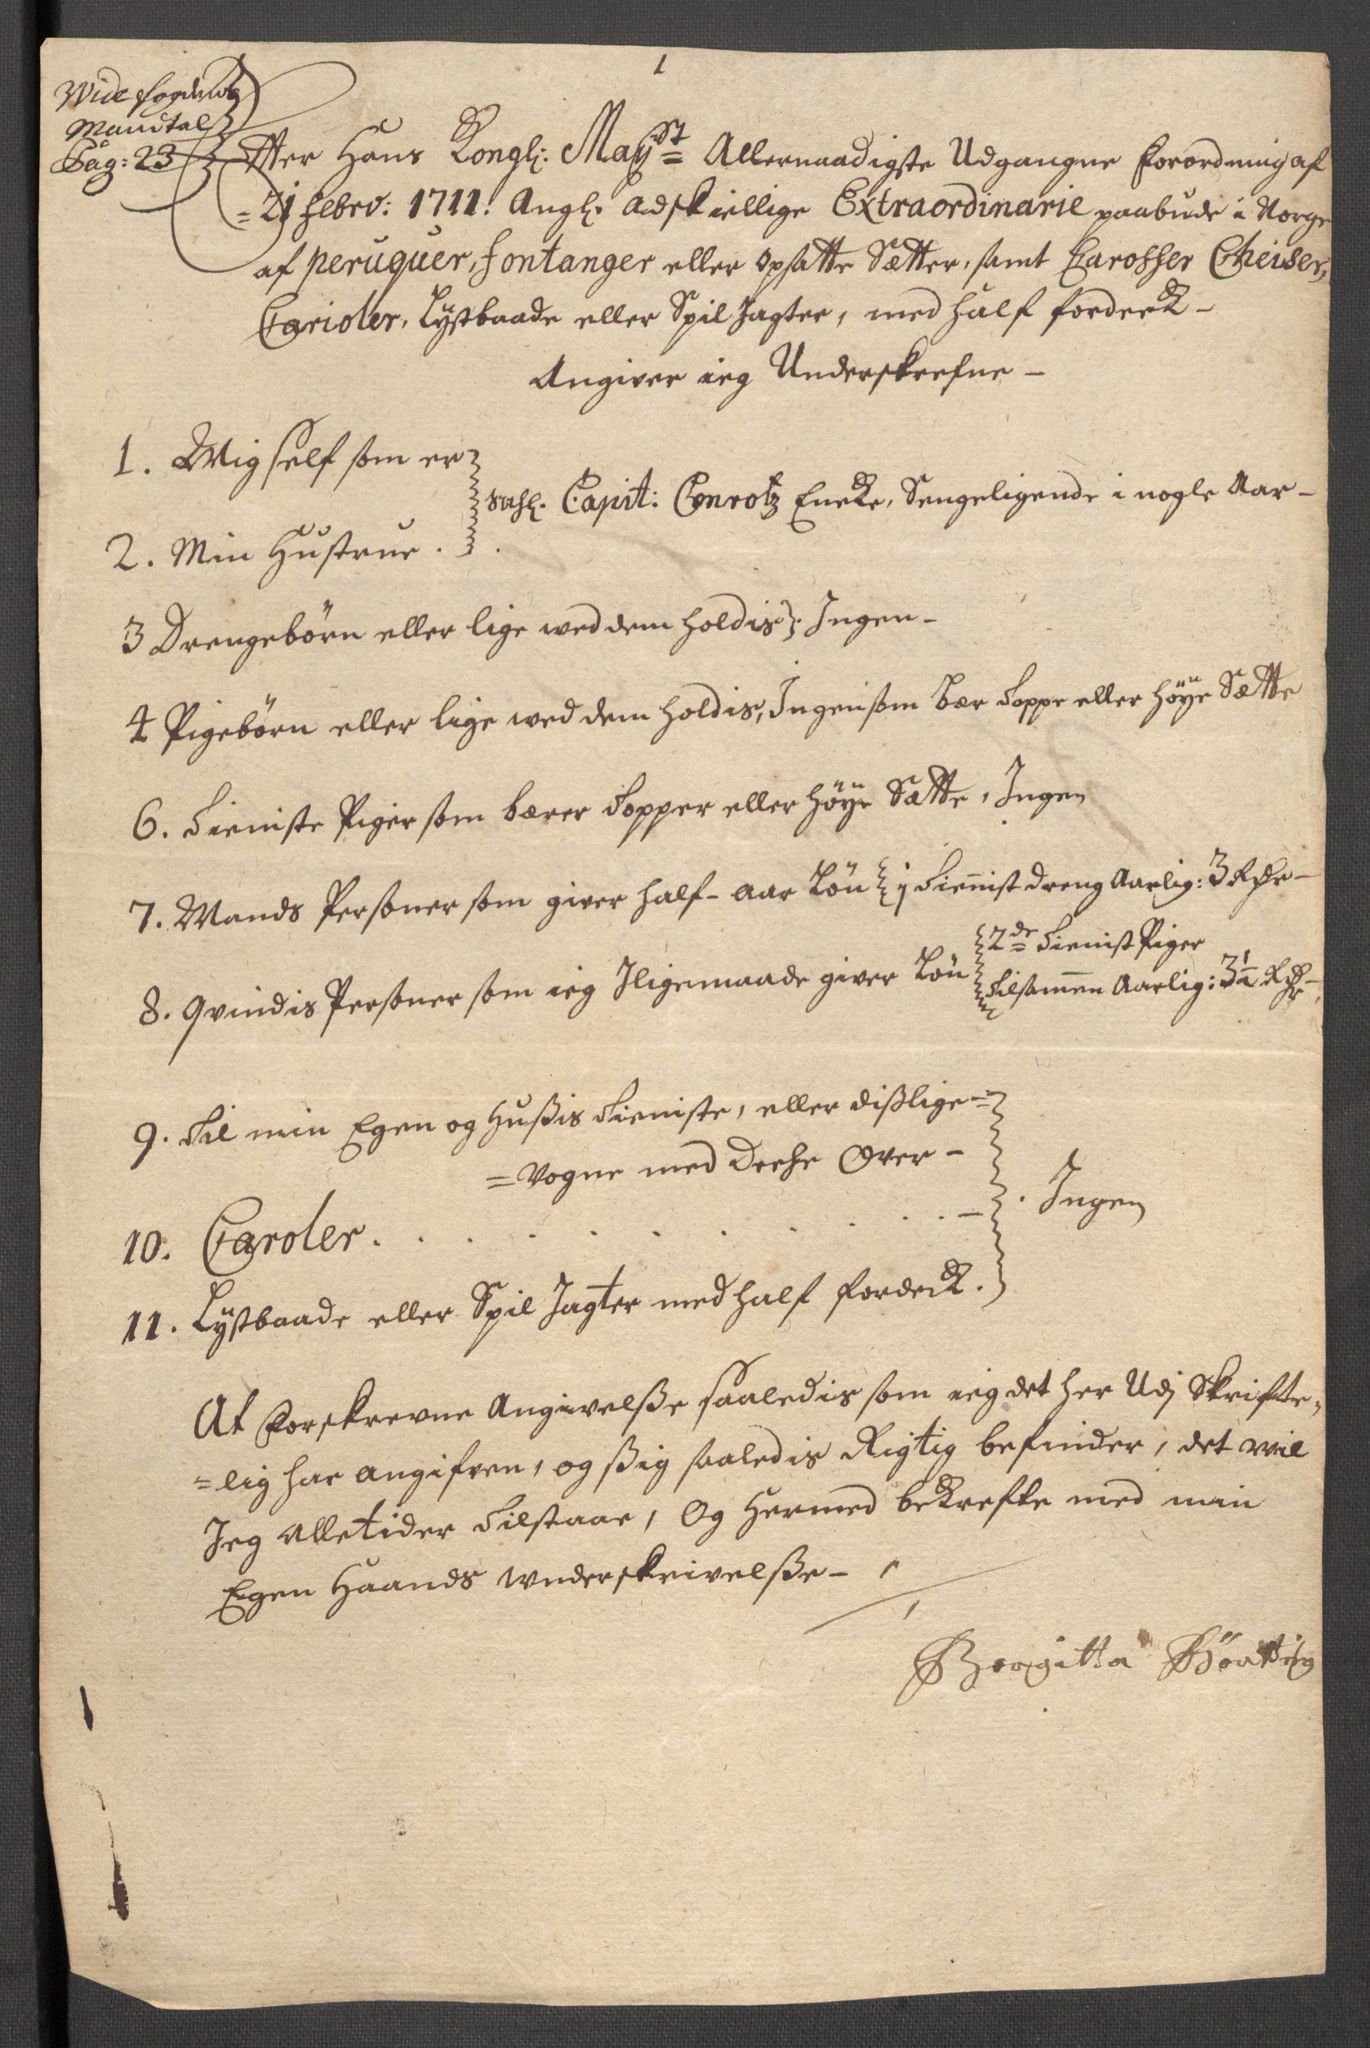 1
Wide fogdens
Mandtals
Pag: 23
Efter Hans Kongl: May.st Allernaadigste Udgangne Forordning af
21 febrv: 1711. Angl. Adskiellige Extraordinarie paabude i Norge
af peruquer, fontanger eller opsatte Sætter, samt Carosser Cheiser,
Carioler, Lystbaade eller Spil Jagter, med half fordeck -
Angiver ieg Underskrefne -
1. Mig self som er
Sahl. Capit: Conrotz Encke, Sengeligende i nogle Aar -
2. Min Hustrue.
3 Drengebörn eller lige wed dem holdis, Ingen -
4 Pigebörn eller lige wed dem holdis, Ingen som bær Toppe eller höÿe Sætte
6. Tieniste Piger som bærer Topper eller höÿe Sætte, Ingen
7. Mands Personer som giver half-aar Lön j Tiennist dreng Aarlig: 3 Rdr -
2de Tienist Piger
8. Qvindis Personer som ieg Iligemaade giver Lön Tilsamen Aarlig: 3½ Rdr -
9. Til min Egen og Hußis Tieniste, eller dißlige =
= Vogne med Deche Over -
10. Caroler. . . . . . . . . . - Ingen
11. Lystbaade eller Spil Jagter med half fordeck.
At Forskrevne Angivelße saaledis som ieg det her Udj Skrifte,
= lig har angifven, og ßig saaledis Rigtig befinder, det wil
Jeg alletider Tilstaar, Og Hermed bekrefte med min
Egen Haands underskrivelße -
Borgitta